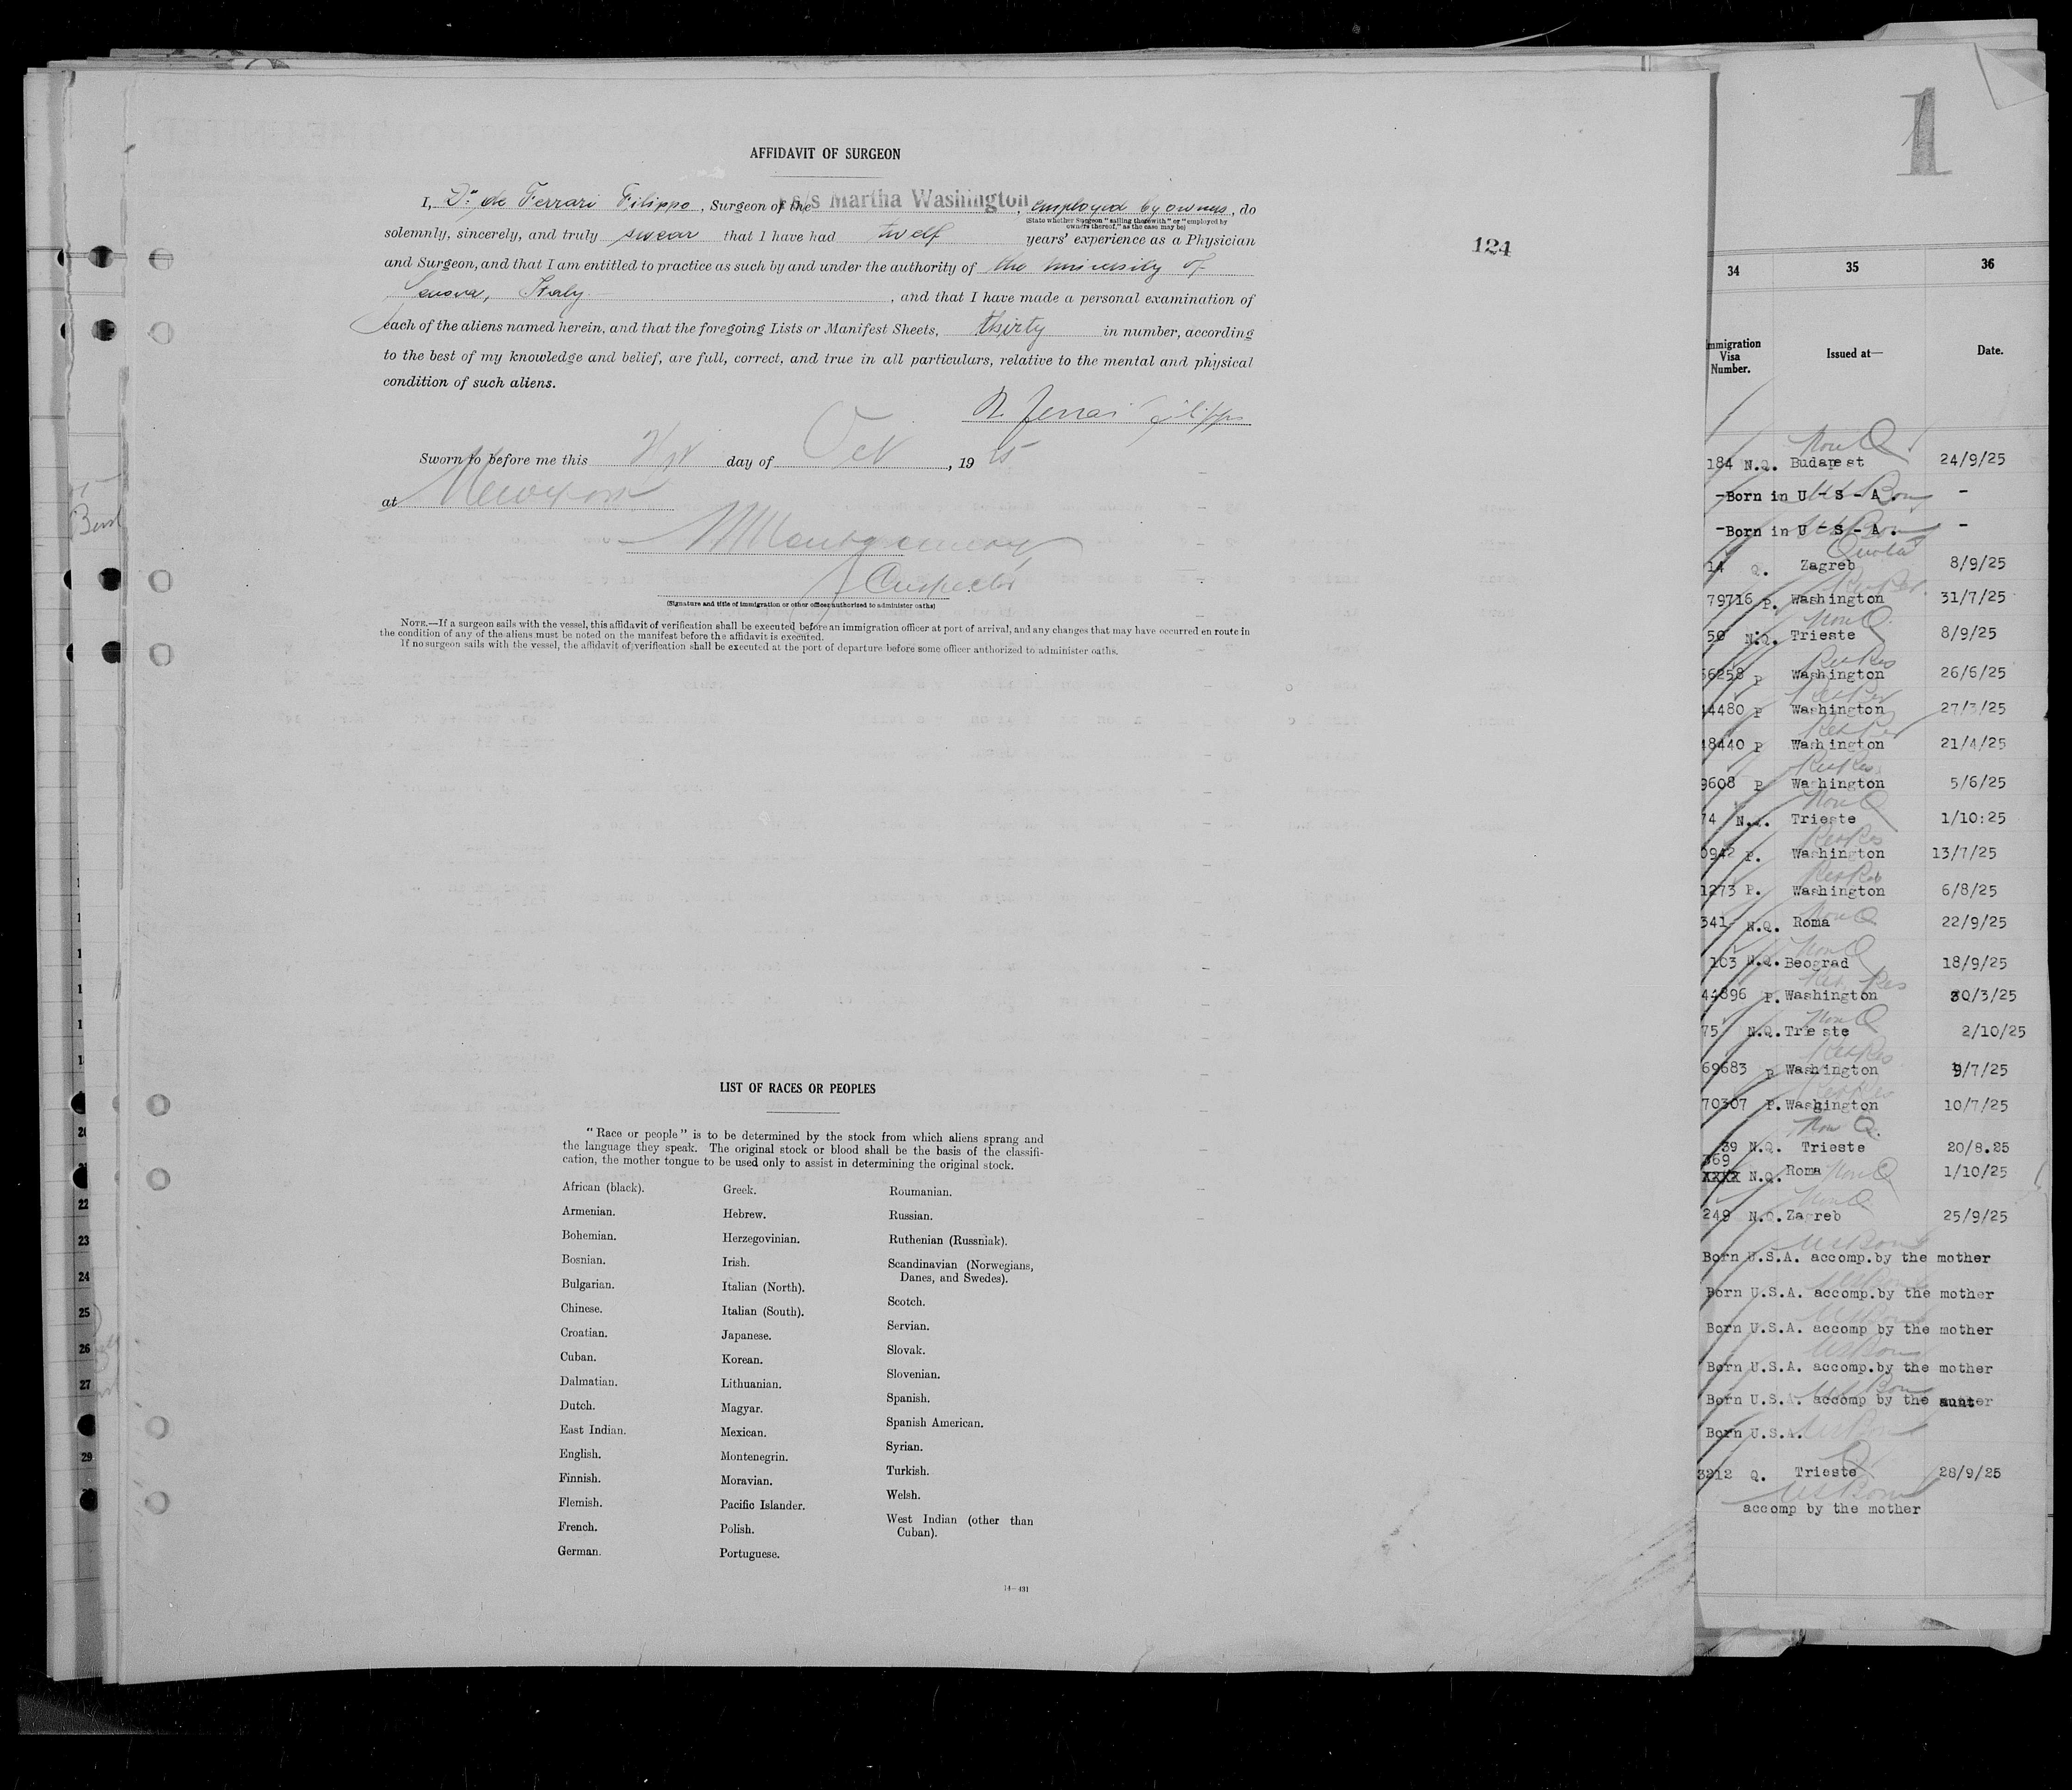 AFFIDAVIT OF SURGEON
I, Dr. de Ferrari Filippo, Surgeon of the s/s Martha Washington, employed by owners, do
(State whether Surgeon "sailing therewith" or "employed by owners thereof," as the case may be)
solemnly, sincerely, and truly swear that I have had twelf years' experience as a Physician
and Surgeon, and that I am entitled to practice as such by and under the authority of the University of
Genova, Italy, and that I have made a personal examination of
each of the aliens named herein, and that the foregoing Lists or Manifest Sheets, thirty in number, according
to the best of my knowledge and belief, are full, correct, and true in all particulars, relative to the mental and physical
condition of such aliens.
Ferrari Filippo
Sworn to before me this day of Oct, 1925
at New York
Montgomery
Inspector
(Signature and title of immigration or other officer authorized to administer oaths)
NOTE.—If a surgeon sails with the vessel, this affidavit of verification shall be executed before an immigration officer at port of arrival, and any changes that may have occurred en route in
the condition of any of the aliens must be noted on the manifest before the affidavit is executed.
If no surgeon sails with the vessel, the affidavit of verification shall be executed at the port of departure before some officer authorized to administer oaths.
124
LIST OF RACES OR PEOPLES
"Race or people" is to be determined by the stock from which aliens sprang and
the language they speak. The original stock or blood shall be the basis of the classifi-
cation, the mother tongue to be used only to assist in determining the original stock.
African (black).
Armenian.
Bohemian.
Bosnian.
Bulgarian.
Chinese.
Croatian.
Cuban.
Dalmatian.
Dutch.
East Indian.
English.
Finnish.
Flemish.
French.
German.
Greek.
Hebrew.
Herzegovinian.
Irish.
Italian (North).
Italian (South).
Japanese.
Korean.
Lithuanian.
Magyar.
Mexican.
Montenegrin.
Moravian.
Pacific Islander.
Polish.
Portuguese.
Roumanian.
Russian.
Ruthenian (Russniak).
Scandinavian (Norwegians,
Danes, and Swedes).
Scotch.
Servian.
Slovak.
Slovenian.
Spanish.
Spanish American.
Syrian.
Turkish.
Welsh.
West Indian (other than
Cuban).
14—431
1
34 35 36
Immigration Visa Number. Issued at— Date.
Non Q
184 N.Q. Budapest 24/9/25
-Born in U - S - A. US Born -
-Born in U - S - A. US Born -
Quota
14 Q. Zagreb 8/9/25
79716 P. Washington 31/7/25
Non Q
50 N.Q. Trieste 8/9/25
Ret Res
66258 P Washington 26/6/25
44480 P Washington 27/3/25
48440 P Washington 21/4/25
Ret Res
9608 P Washington 5/6/25
Non Q
74 N.Q. Trieste 1/10:25
Ret Res
0942 P. Washington 13/7/25
Ret Res
1273 P. Washington 6/8/25
341 N.Q. Roma Non Q 22/9/25
Non Q
103 N.Q. Beograd 18/9/25
Ret Res
44896 P. Washington 30/3/25
Non Q
75 N.Q. Trieste 2/10/25
Ret Res
69683 P Washington 9/7/25
70307 P. Washington 10/7/25
Non Q.
39 N.Q. Trieste 20/8.25
369
XXXX N.Q. Roma Non Q 1/10/25
Non Q
249 N.Q. Zagreb 25/9/25
US Born
Born U.S.A. accomp.by the mother
US Born
Born U.S.A. accomp.by the mother
US Born
Born U.S.A. accomp by the mother
US Born
Born U.S.A. accomp.by the mother
US Born
Born U.S.A. accomp by the aunt
Born U.S.A. US Born
Q
3212 Q. Trieste 28/9/25
US Born
accomp by the mother
22
23
24
25
26
27
29